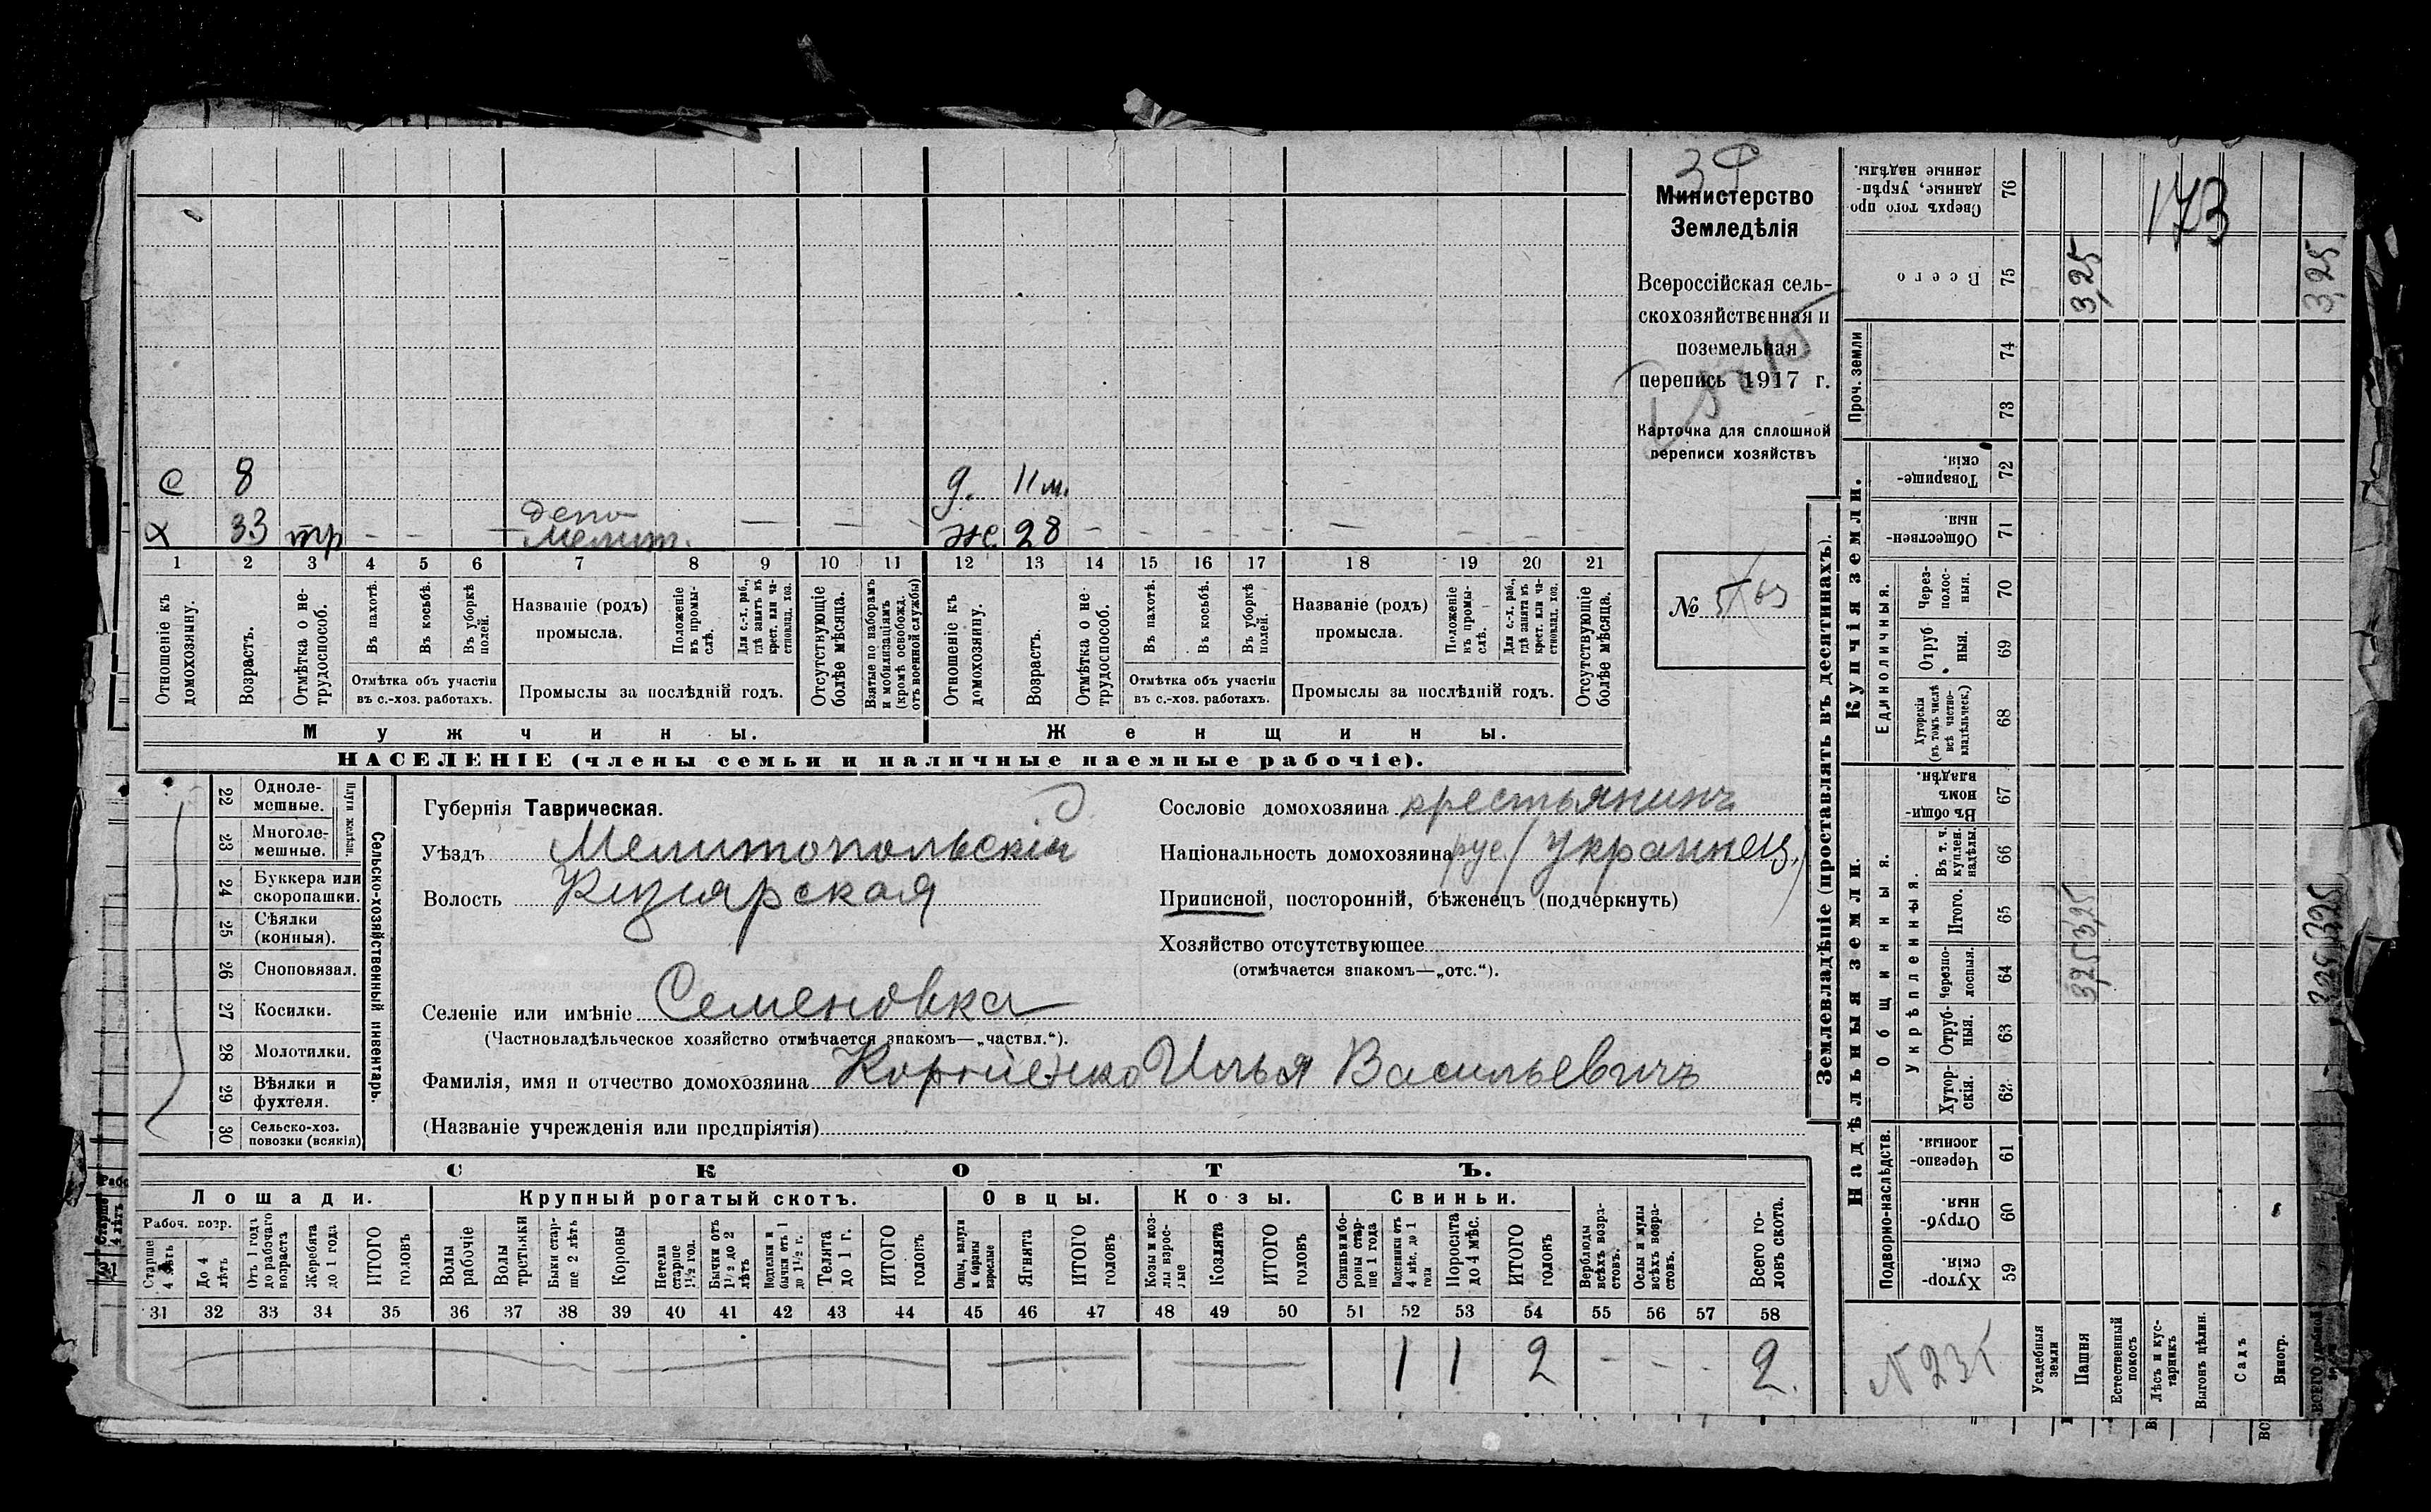 34
Министерство
Земледѣлія
Всероссійская сель-
скохозяйственная и
поземельная
перепись 1917 г.
Карточка для сплошной
переписи хозяйствъ
№
с 8
д. 11 м.
х 33 тр - - - депо Мелит. — — -
ж. 28 - - - - — - - -
1 2 3 4 5 6 7 8 9 10 11 12 13 14 15 16 17 18 19 20 21
Отношеніе къ домохозяину.
Возрастъ.
Отмѣтка о не-трудоспособ.
Въ пахотѣ.
Въ косьбѣ.
Въ уборкѣ полей.
Отмѣтка объ участіи въ с.-хоз. работахъ.
Названіе (родъ) промысла.
Положеніе въ промы-слѣ.
Для с.-х. раб., гдѣ занятъ въ крест. или ча-стновлад. хоз.
Промыслы за послѣдній годъ.
Отсутствующіе болѣе мѣсяца.
Взятые по наборамъ и мобилизаціямъ (кромѣ освобожд. отъ военной службы)
Отношеніе къ домохозяину.
Возрастъ.
Отмѣтка о не-трудоспособ.
Въ пахотѣ.
Въ косьбѣ.
Въ уборкѣ полей.
Отмѣтка объ участіи въ с.-хоз. работахъ.
Названіе (родъ) промысла.
Положеніе въ промы-слѣ.
Для с.-х. раб., гдѣ занята въ крест. или ча-стновлад. хоз.
Промыслы за послѣдній годъ.
Отсутствующіе болѣе мѣсяца.
Мужчины.
Женщины.
НАСЕЛЕНІЕ (члены семьи и наличные наемные рабочіе).
22 Одноле-мешные.
23 Многоле-мешные.
Плуги желѣзн.
24 Буккера или скоропашки.
25 Сѣялки (конныя).
26 Сноповязал.
27 Косилки.
28 Молотилки.
29 Вѣялки и фухтеля.
30 Сельско-хоз. повозки (всякія)
Сельско-хозяйственный инвентарь.
Губернія Таврическая.
Уѣздъ Мелитопольскій
Волость Кизіярская
Селеніе или имѣніе Семеновка
(Частновладѣльческое хозяйство отмѣчается знакомъ—„частвл.“).
Фамилія, имя и отчество домохозяина Корніенко Илья Васильевичъ
(Названіе учрежденія или предпріятія)
Сословіе домохозяина крестьянинъ
Національность домохозяина рус. (украинец.)
Приписной, посторонній, бѣженецъ (подчеркнуть)
Хозяйство отсутствующее
(отмѣчается знакомъ—„отс.“).
СКОТЪ.
Лошади. Крупный рогатый скотъ. Овцы. Козы. Свиньи.
Рабоч. возр.
Старше 4 лѣтъ
До 4 лѣтъ
Отъ 1 года до рабочаго возраста
Жеребята до 1 года
ИТОГО головъ
Волы рабочіе
Волы третьяки
Быки стар-ше 2 лѣтъ
Коровы
Нетели старше 1½ год.
Бычки отъ 1½ до 2 лѣтъ
Телята до 1 г.
ИТОГО головъ
Овцы, валухи и бараны взрослые
Ягнята
ИТОГО головъ
Козы и коз-лы взрос-лые
Козлята
ИТОГО головъ
Свиньи и бо-ровы стар-ше 1 года
Подсвинки отъ 4 мѣс. до 1 года
Поросята до 4 мѣс.
ИТОГО головъ
Верблюды всѣхъ возра-стовъ.
Ослы и мулы всѣхъ возра-стовъ.
Всего го-ловъ скота.
31 32 33 34 35 36 37 38 39 40 41 42 43 44 45 46 47 48 49 50 51 52 53 54 55 56 57 58
1 1 2 - - - 2.
Землевладѣніе (проставлять въ десятинахъ).
Надѣльныя земли.
Купчія земли.
Проч. земли
Подворно-наслѣдств.
Общинныя.
Укрѣпленныя.
Единоличныя.
Сверхъ того про-данные, укрѣп-ленные надѣлы. 76
Всего 75
74
73
Товарище-скія. 72
Обществен-ныя. 71
Через-полос-ныя. 70
Отруб-ныя. 69
Хуторскія (въ томъ числѣ всѣ частно-владѣльческ.) 68
Въ общи-номъ владѣн. 67
Въ т. ч. куплен. надѣлы. 66
Итого. 65
Черезпо-лосныя. 64
Отруб-ныя. 63
Хутор-скія. 62
Черезпо-лосныя. 61
Отруб-ныя. 60
Хутор-скія. 59
173
3,25
3,25
3,25 3,25
3,25 3,25
Усадебныя земли
Пашня
Естественный покосъ
Лѣсъ и кус-тарникъ
Выгонъ цѣлин.
Садъ
Виногр.